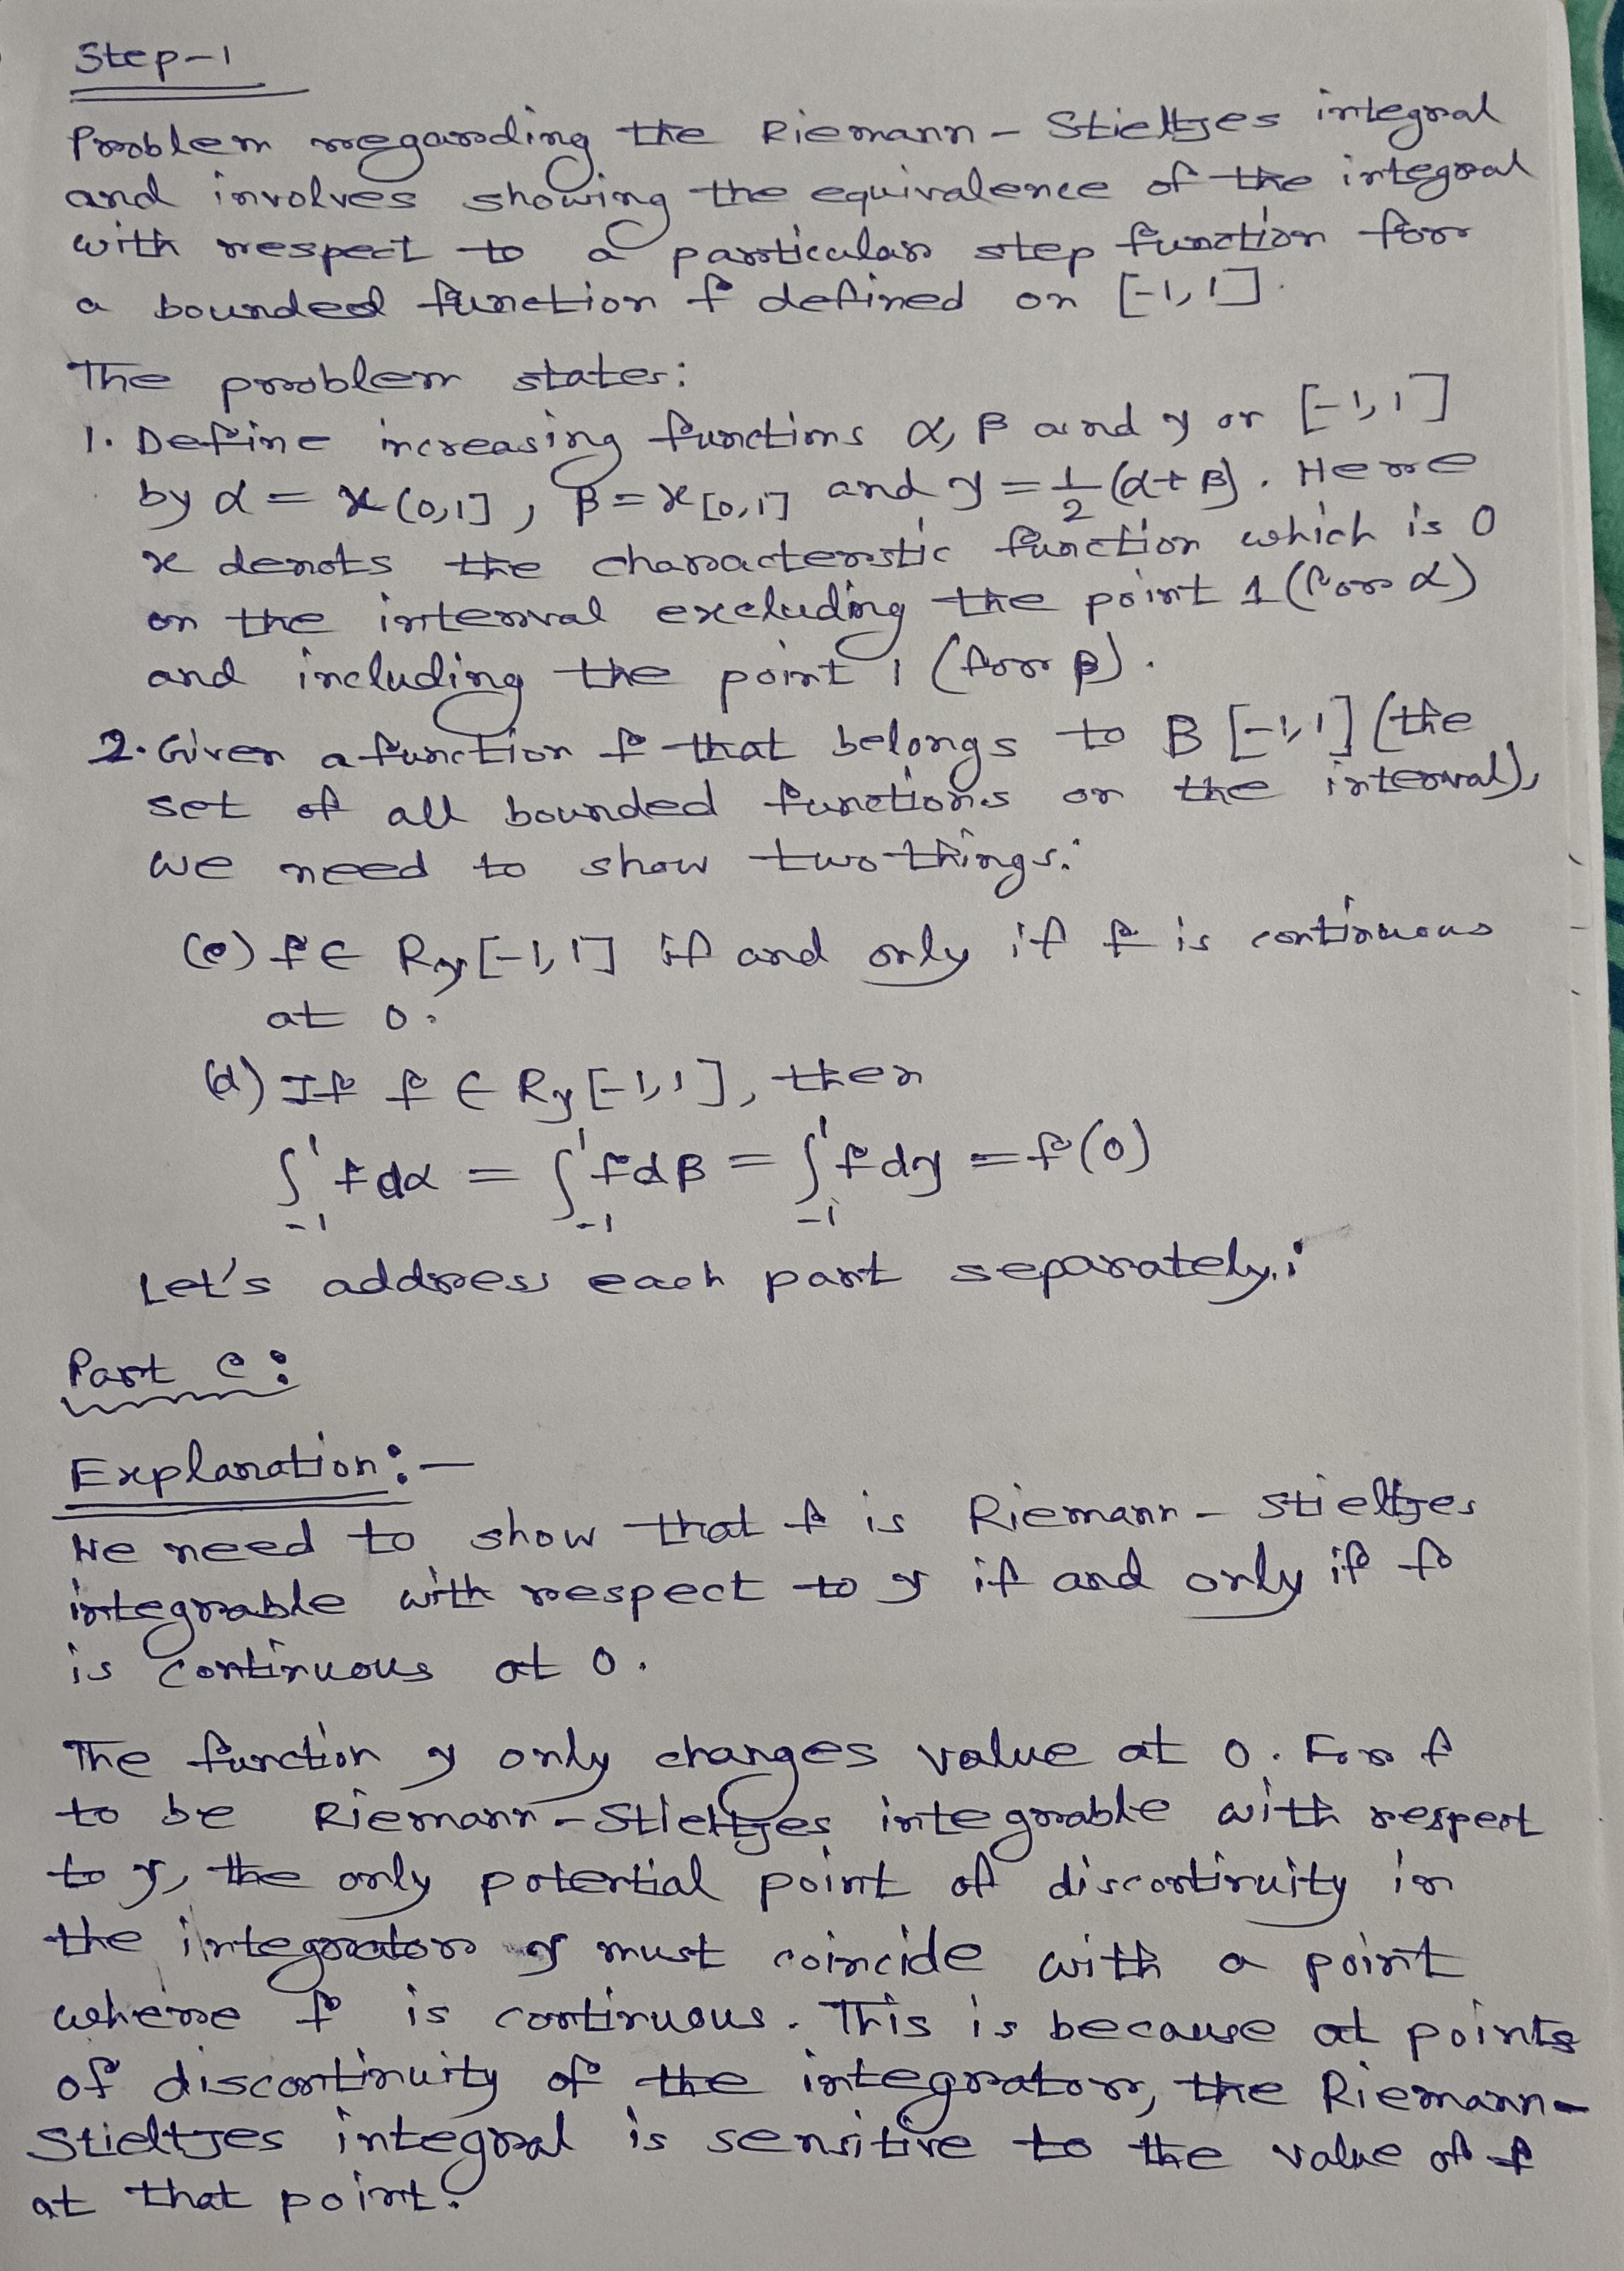 Step-1
Problem regarding the Riemann - Stieltjes integral
and involves showing the equivalence of the integral
with respect to a particular step function for
a bounded function f defined on [-1,1].
The problem states:
1. Define increasing functions α, β and γ on [-1,1]
by α = χ(0,1], β = χ[0,1] and γ = 1/2 (α+β). Here
χ denots the characteristic function which is 0
on the interval excluding the point 1 (for α)
and including the point 1 (for β).
2. Given a function f that belongs to B [-1,1] (the
set of all bounded functions on the interval),
we need to show two things:
(c) f ∈ Rγ[-1,1] if and only if f is continuous
at 0.
(d) If f ∈ Rγ[-1,1], then
∫₋₁¹ f dα = ∫₋₁¹ f dβ = ∫₋₁¹ f dγ = f(0)
Let's address each part separately:
Part c:
Explanation:-
We need to show that f is Riemann - Stieltjes
integrable with respect to γ if and only if f
is continuous at 0.
The function γ only changes value at 0. For f
to be Riemann - Stieltjes integrable with respect
to γ, the only potential point of discontinuity in
the integrator γ must coincide with a point
where f is continuous. This is because at points
of discontinuity of the integrator, the Riemann-
Stieltjes integral is sensitive to the value of f
at that point.